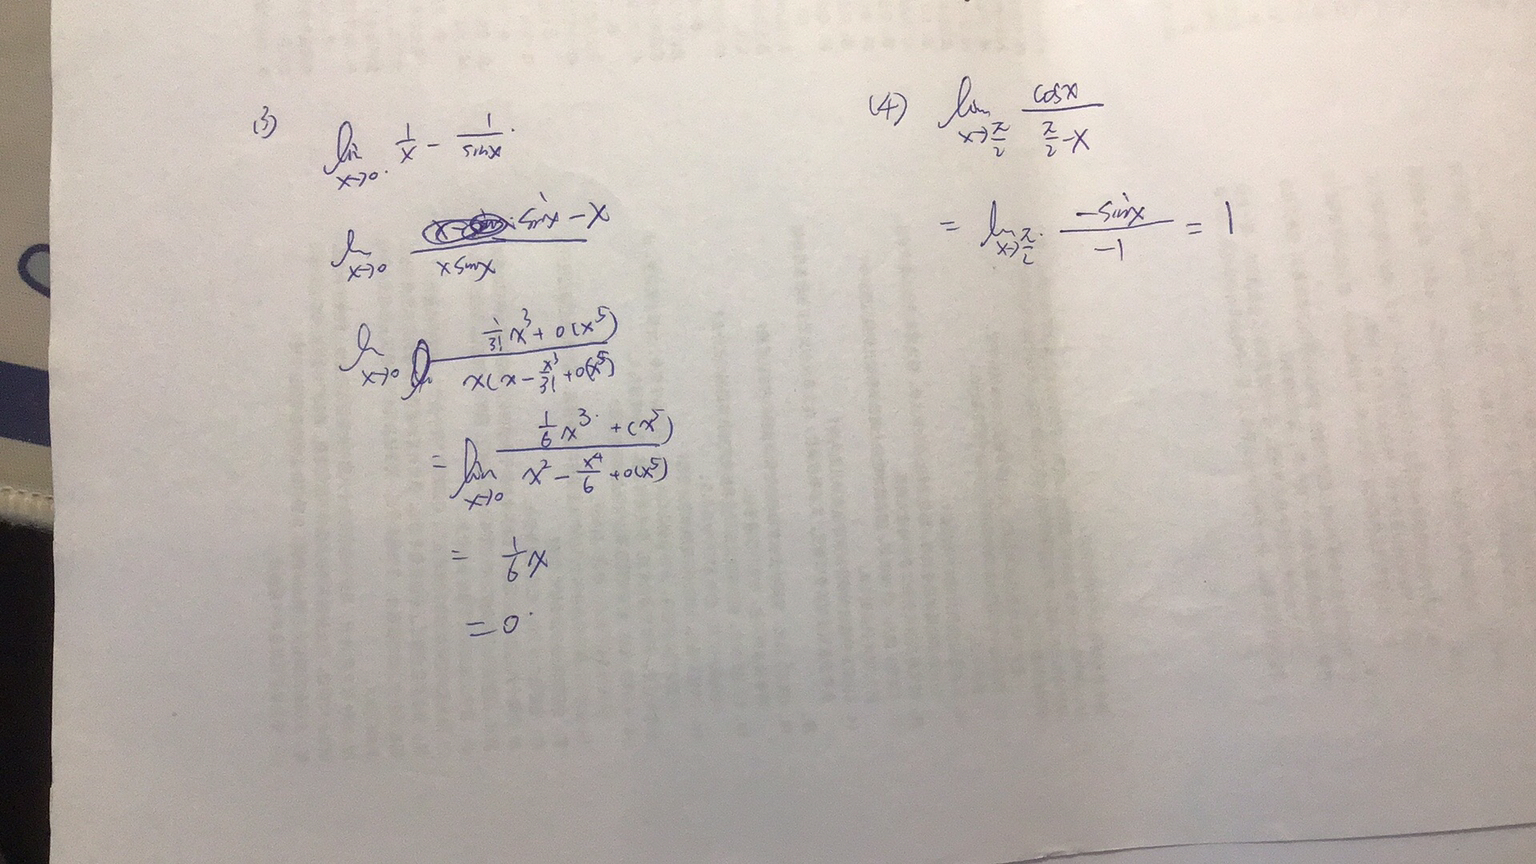 (3) lim x→0 1/x - 1/sinx
lim x→0 sinx - x / x sinx
lim x→0 1/3! x³ + o(x⁵) / x(x - x³/3! + o(x⁵)
= lim x→0 1/6 x³ + (x⁵) / x² - x⁴/6 + o(x⁵)
= 1/6 x
= 0
(4) lim x→π/2 cosx / π/2 - x
= lim x→π/2 -sinx / -1 = 1